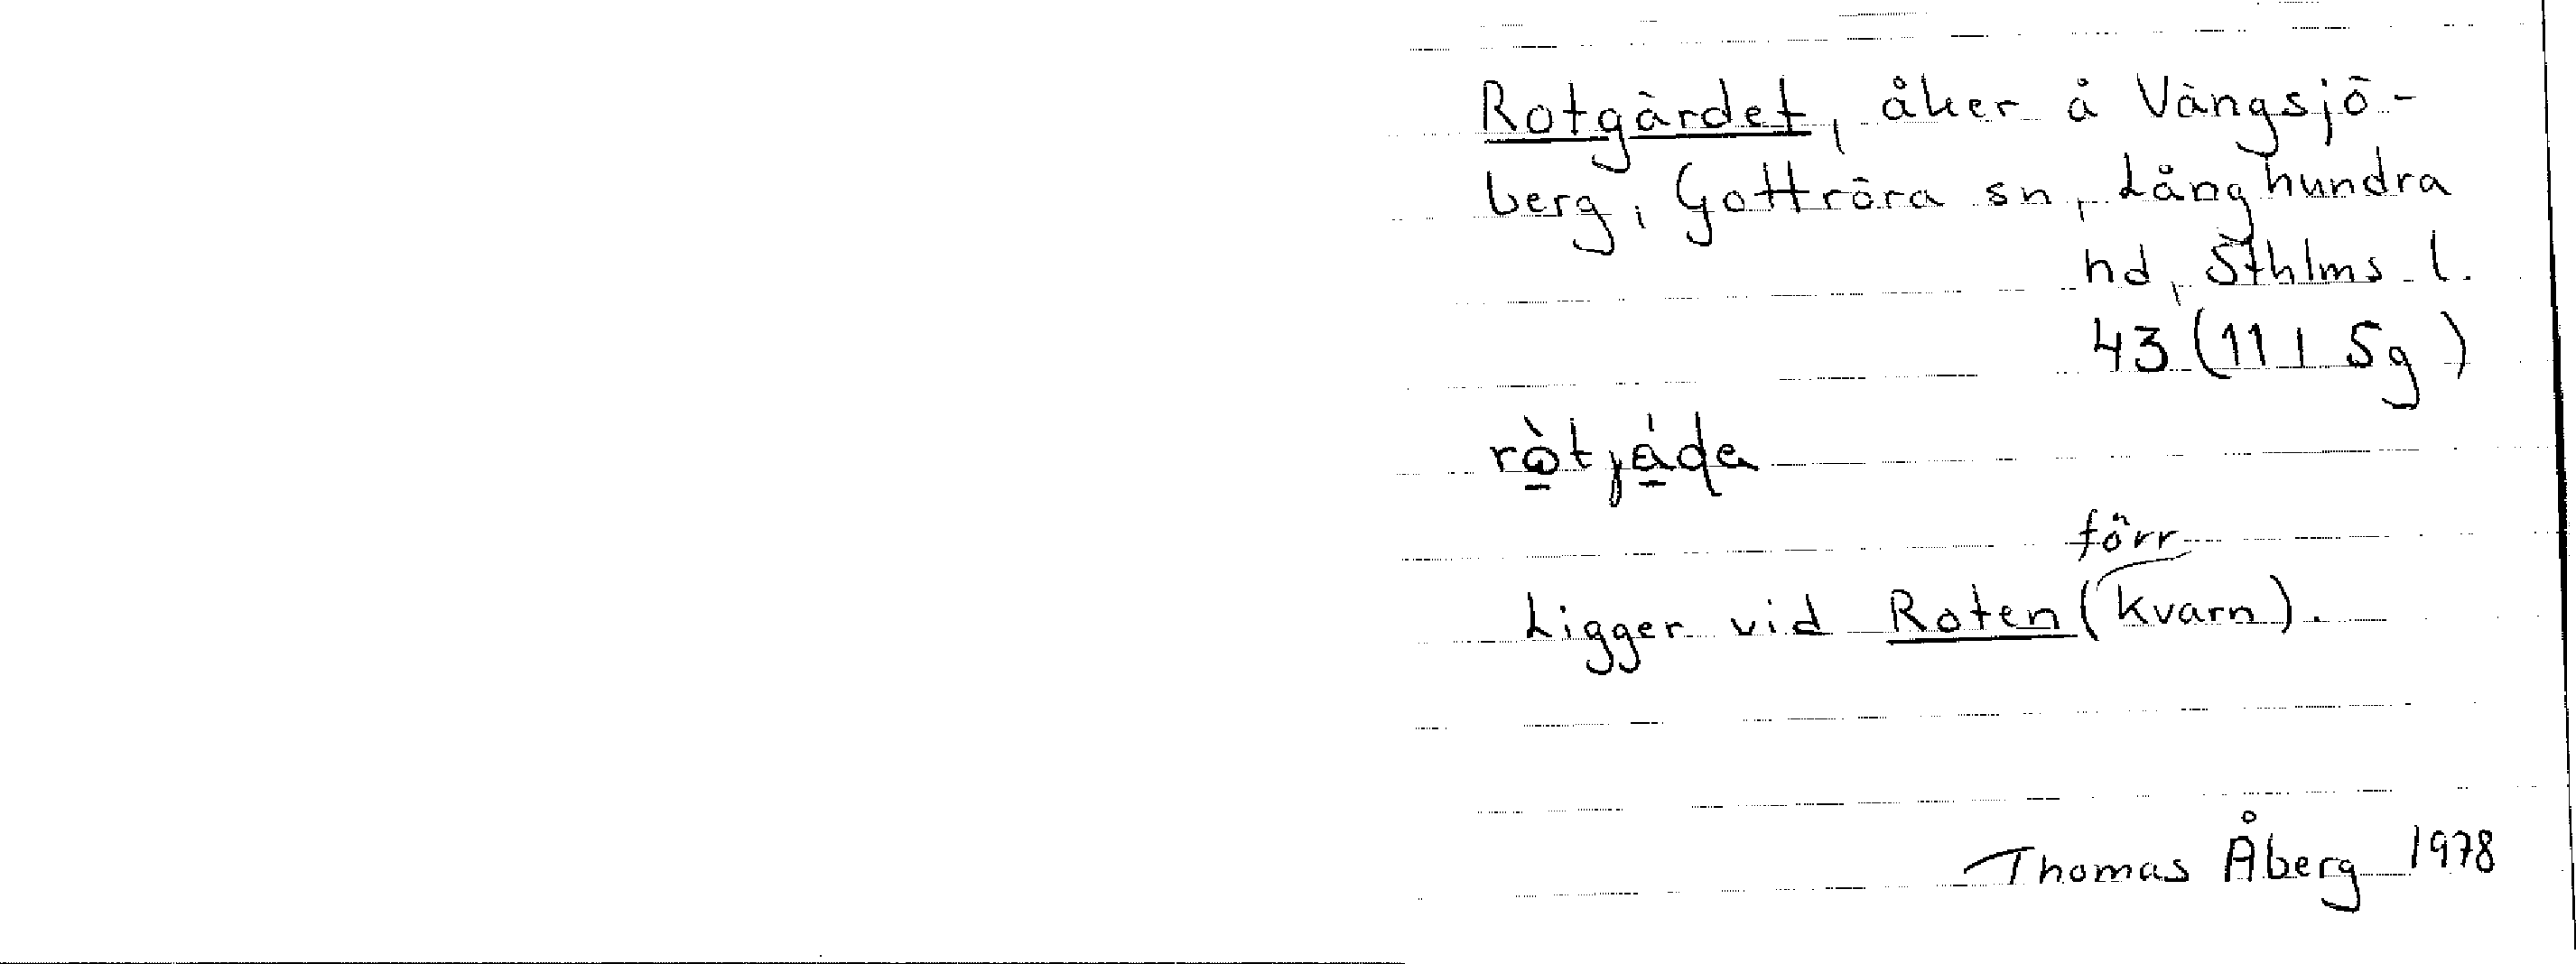 Rotgärdet, åker å Vängsjö-
berg, Gottröra sn, Långhundra
hd, Sthlms l.
43 (11 I 5g)
rò̱tjá̱de
förr
Ligger vid Roten (kvarn).
Thomas Åberg 1978